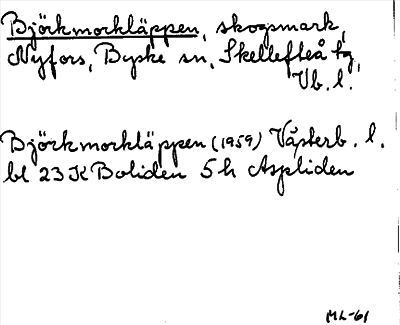 Björkmorkläppen, skogsmark,
Nyfors, Byske sn, Skellefteå tg,
Vb. l.
Björkmorkläppen (1959) Västerb. l.
bl 23 K Boliden 5h Aspliden
ML-61